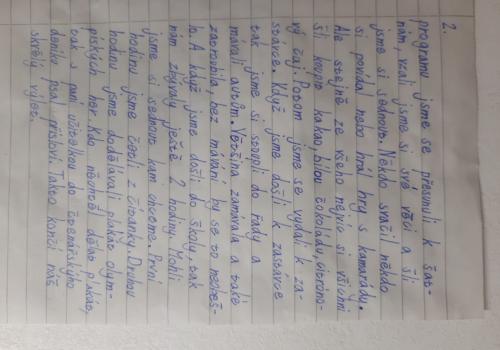 2.
programu jsme se přesunuli k šat-
nám, vzali jsme si své věci a šli
jsme si sednout. Někdo svačil někdo
si povídal nebo hrál hry s kamarády.
Ale stejně ze všeho nejvíc si všichni
šli koupit kakao, bílou čokoládu, citróno-
vý čaj. Potom jsme se vydali k za-
stávce. Když jsme došli k zastávce
tak jsme si stoupli do řady a
mávali autům. Většina zamávala a také
zatroubila, bez mávání by se to neobeš-
lo. A když jsme došli do školy, tak
nám zbývaly ještě 2 hodiny. Mohli
jsme si sednout kam chceme. První
hodinu jsme četli z čítanky. Druhou
hodinu jsme dodělávali plakát olym-
pijských her. Kdo nechtěl dělat plakát,
tak s paní učitelkou do čtenářského
deníku psal přísloví. Takto končí náš
skvělý výlet.